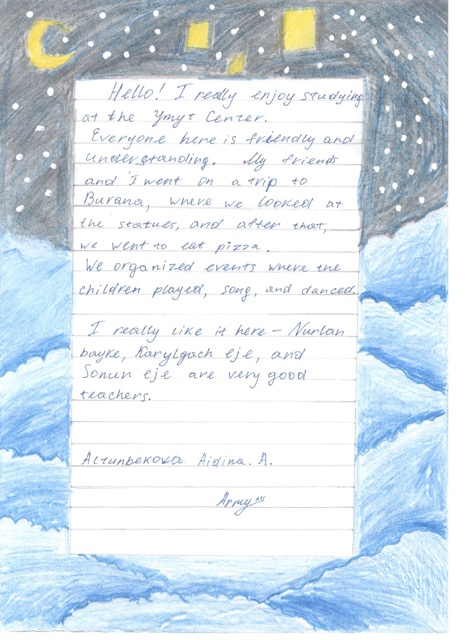 Hello! I really enjoy studying
at the Ymyt Center.
Everyone here is friendly and
understanding. My friends
and I went on a trip to
Burana, where we looked at
the statues, and after that,
we went to eat pizza.
We organized events where the
children played, song, and danced.
I really like it here – Nurlan
bayke, Karylgach eje, and
Sonun eje are very good
teachers.
Altunbekova Aidina. A.